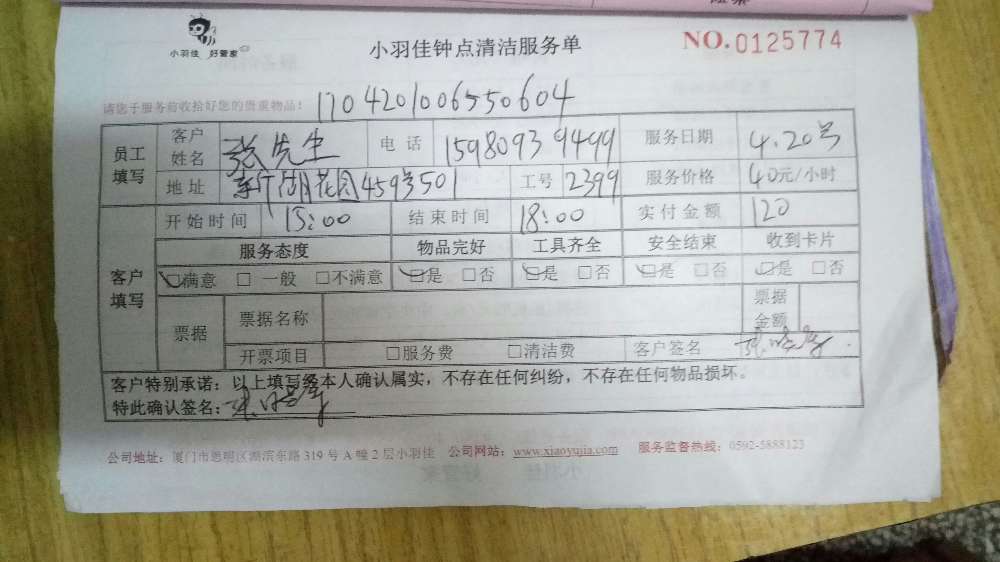 小羽佳 好管家
小羽佳钟点清洁服务单
NO.0125774
请您于服务前收拾好您的贵重物品!
170420100655060​4
员工填写 客户姓名 张先生 电话 15980939499 服务日期 4.20号
地址 花园459号501 工号 2399 服务价格 40元/小时
客户填写 开始时间 15:00 结束时间 18:00 实付金额 120
服务态度 物品完好 工具齐全 安全结束 收到卡片
☑满意 □一般 □不满意 ☑是 □否 ☑是 □否 ☑是 □否 ☑是 □否
票据 票据名称 票据金额
开票项目 □服务费 □清洁费 客户签名
客户特别承诺:以上填写经本人确认属实,不存在任何纠纷,不存在任何物品损坏。
特此确认签名:
公司地址:厦门市思明区湖滨东路 319 号 A 幢 2 层小羽佳 公司网站:www.xiaoyujia.com 服务监督热线:0592-5888123